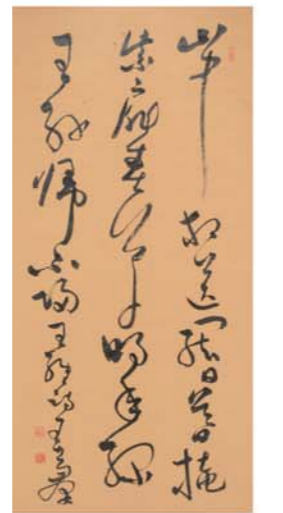 山中相送罷日暮掩
柴扉春草明年綠
王孫歸不歸王維詩